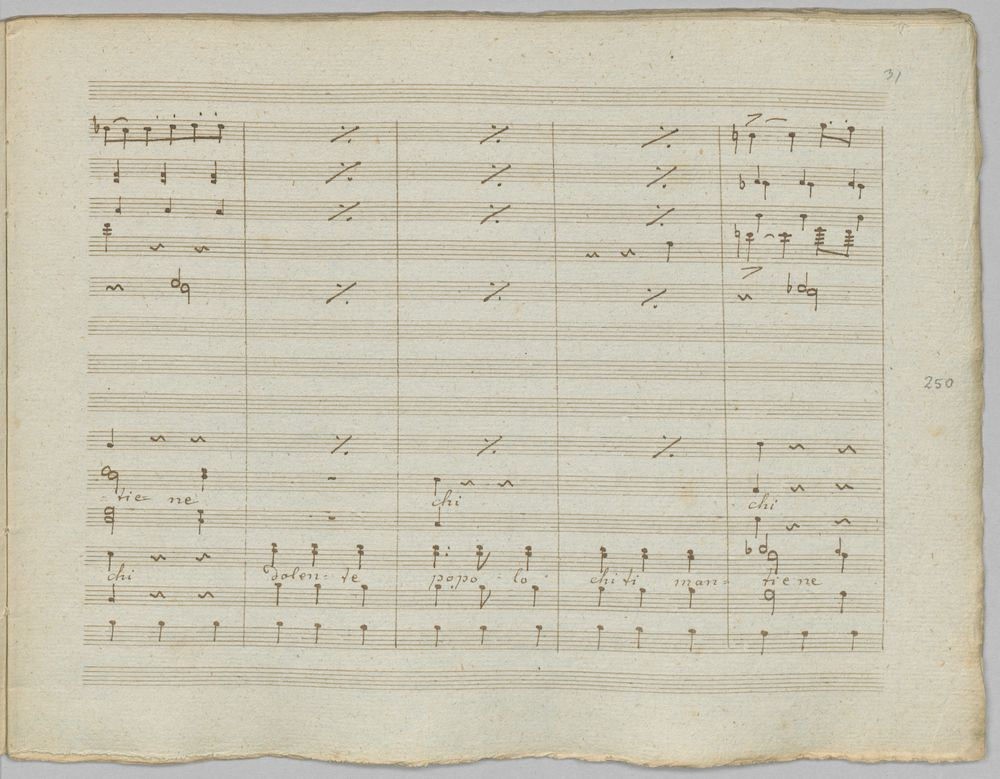 31
250
-tie- ne chi chi
chi dolen- te popo- lo chi ti man- tiene